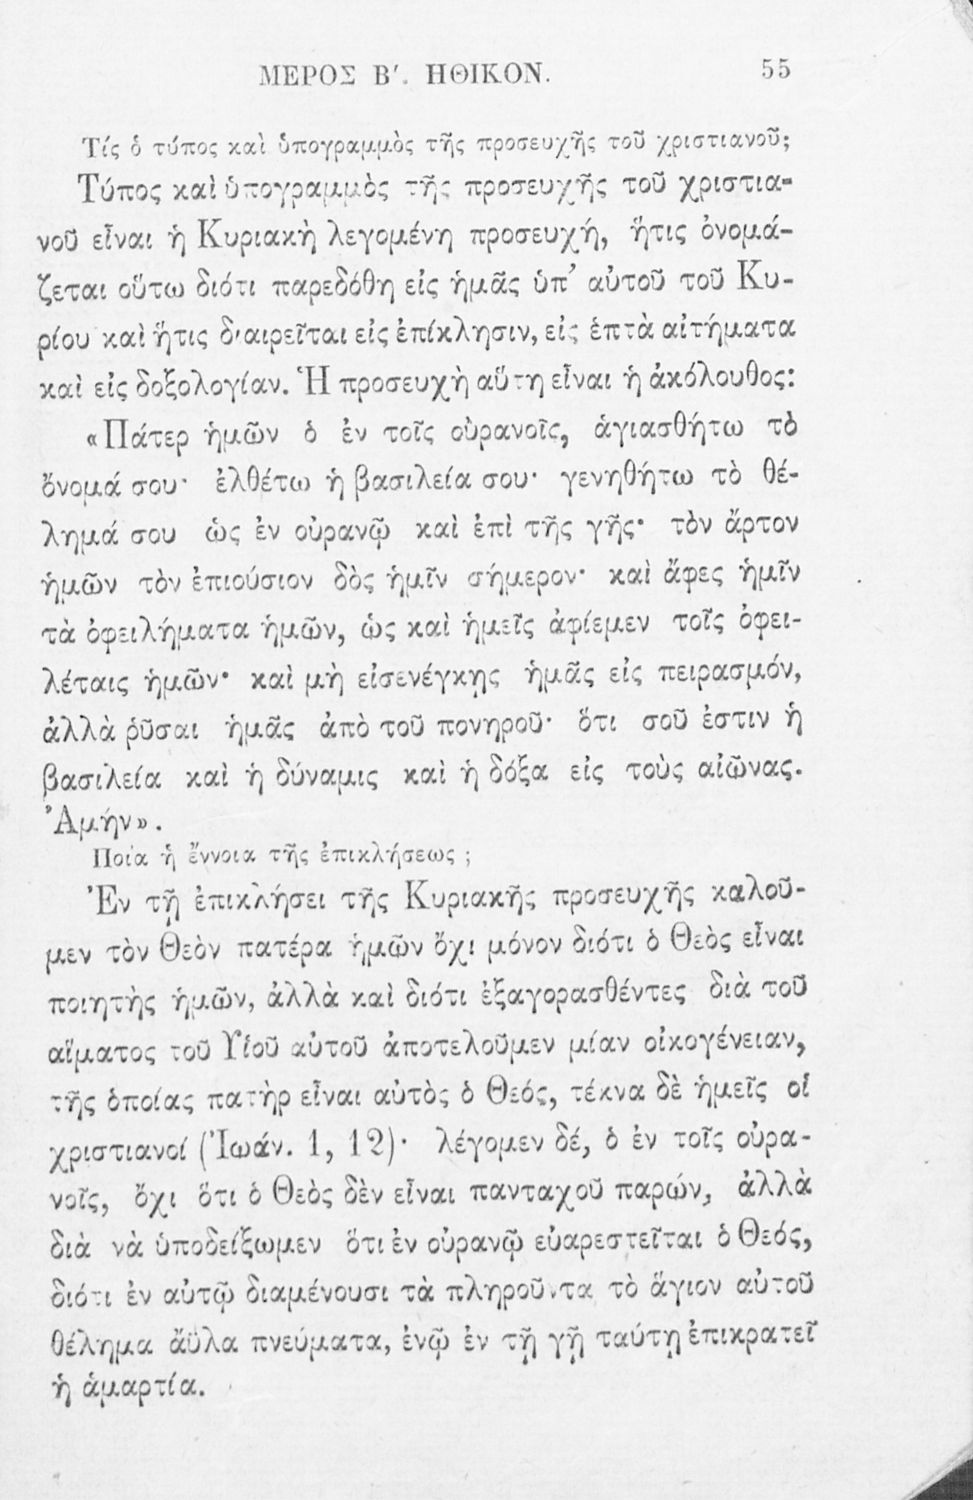 ΜΕΡΟΣ Β΄. ΗΘΙΚΟΝ. 55
Τίς ὁ τύπος καὶ ὑπογραμμὸς τῆς προσευχῆς τοῦ χριστιανοῦ;
Τύπος καὶ ὑπογραμμὸς τῆς προσευχῆς τοῦ χριστια-
νοῦ εἶναι ἡ Κυριακὴ λεγομένη προσευχή, ἥτις ὀνομά-
ζεται οὕτω διότι παρεδόθη εἰς ἡμᾶς ὑπ᾿ αὐτοῦ τοῦ Κυ-
ρίου καὶ ἥτις διαιρεῖται εἰς ἐπίκλησιν, εἰς ἑπτὰ αἰτήματα
καὶ εἰς δοξολογίαν. Ἡ προσευχὴ αὕτη εἶναι ἡ ἀκόλουθος:
«Πάτερ ἡμῶν ὁ ἐν τοῖς οὐρανοῖς, ἁγιασθήτω τὸ
ὄνομά σου· ἐλθέτω ἡ βασιλεία σου· γενηθήτω τὸ θέ-
λημά σου ὡς ἐν οὐρανῷ καὶ ἐπὶ τῆς γῆς· τὸν ἄρτον
ἡμῶν τὸν ἐπιούσιον δὸς ἡμῖν σήμερον· καὶ ἄφες ἡμῖν
τὰ ὀφειλήματα ἡμῶν, ὡς καὶ ἡμεῖς ἀφίεμεν τοῖς ὀφει-
λέταις ἡμῶν· καὶ μὴ εἰσενέγκῃς ἡμᾶς εἰς πειρασμόν,
ἀλλὰ ῥῦσαι ἡμᾶς ἀπὸ τοῦ πονηροῦ· ὅτι σοῦ ἐστιν ἡ
βασιλεία καὶ ἡ δύναμις καὶ ἡ δόξα εἰς τοὺς αἰῶνας.
Ἀμήν».
Ποία ἡ ἔννοια τῆς ἐπικλήσεως;
Ἐν τῇ ἐπικλήσει τῆς Κυριακῆς προσευχῆς καλοῦ-
μεν τὸν Θεὸν πατέρα ἡμῶν ὄχι μόνον διότι ὁ Θεὸς εἶναι
ποιητὴς ἡμῶν, ἀλλὰ καὶ διότι ἐξαγορασθέντες διὰ τοῦ
αἵματος τοῦ Υἱοῦ αὐτοῦ ἀποτελοῦμεν μίαν οἰκογένειαν,
τῆς ὁποίας πατὴρ εἶναι αὐτὸς ὁ Θεός, τέκνα δὲ ἡμεῖς οἱ
χριστιανοί (Ἰωάν. 1, 12)· λέγομεν δέ, ὁ ἐν τοῖς οὐρα-
νοῖς, ὄχι ὅτι ὁ Θεὸς δὲν εἶναι πανταχοῦ παρών, ἀλλὰ
διὰ νὰ ὑποδείξωμεν ὅτι ἐν οὐρανῷ εὐαρεστεῖται ὁ Θεός,
διότι ἐν αὐτῷ διαμένουσι τὰ πληροῦντα τὸ ἅγιον αὐτοῦ
θέλημα ἄϋλα πνεύματα, ἐνῷ ἐν τῇ γῇ ταύτῃ ἐπικρατεῖ
ἡ ἁμαρτία.